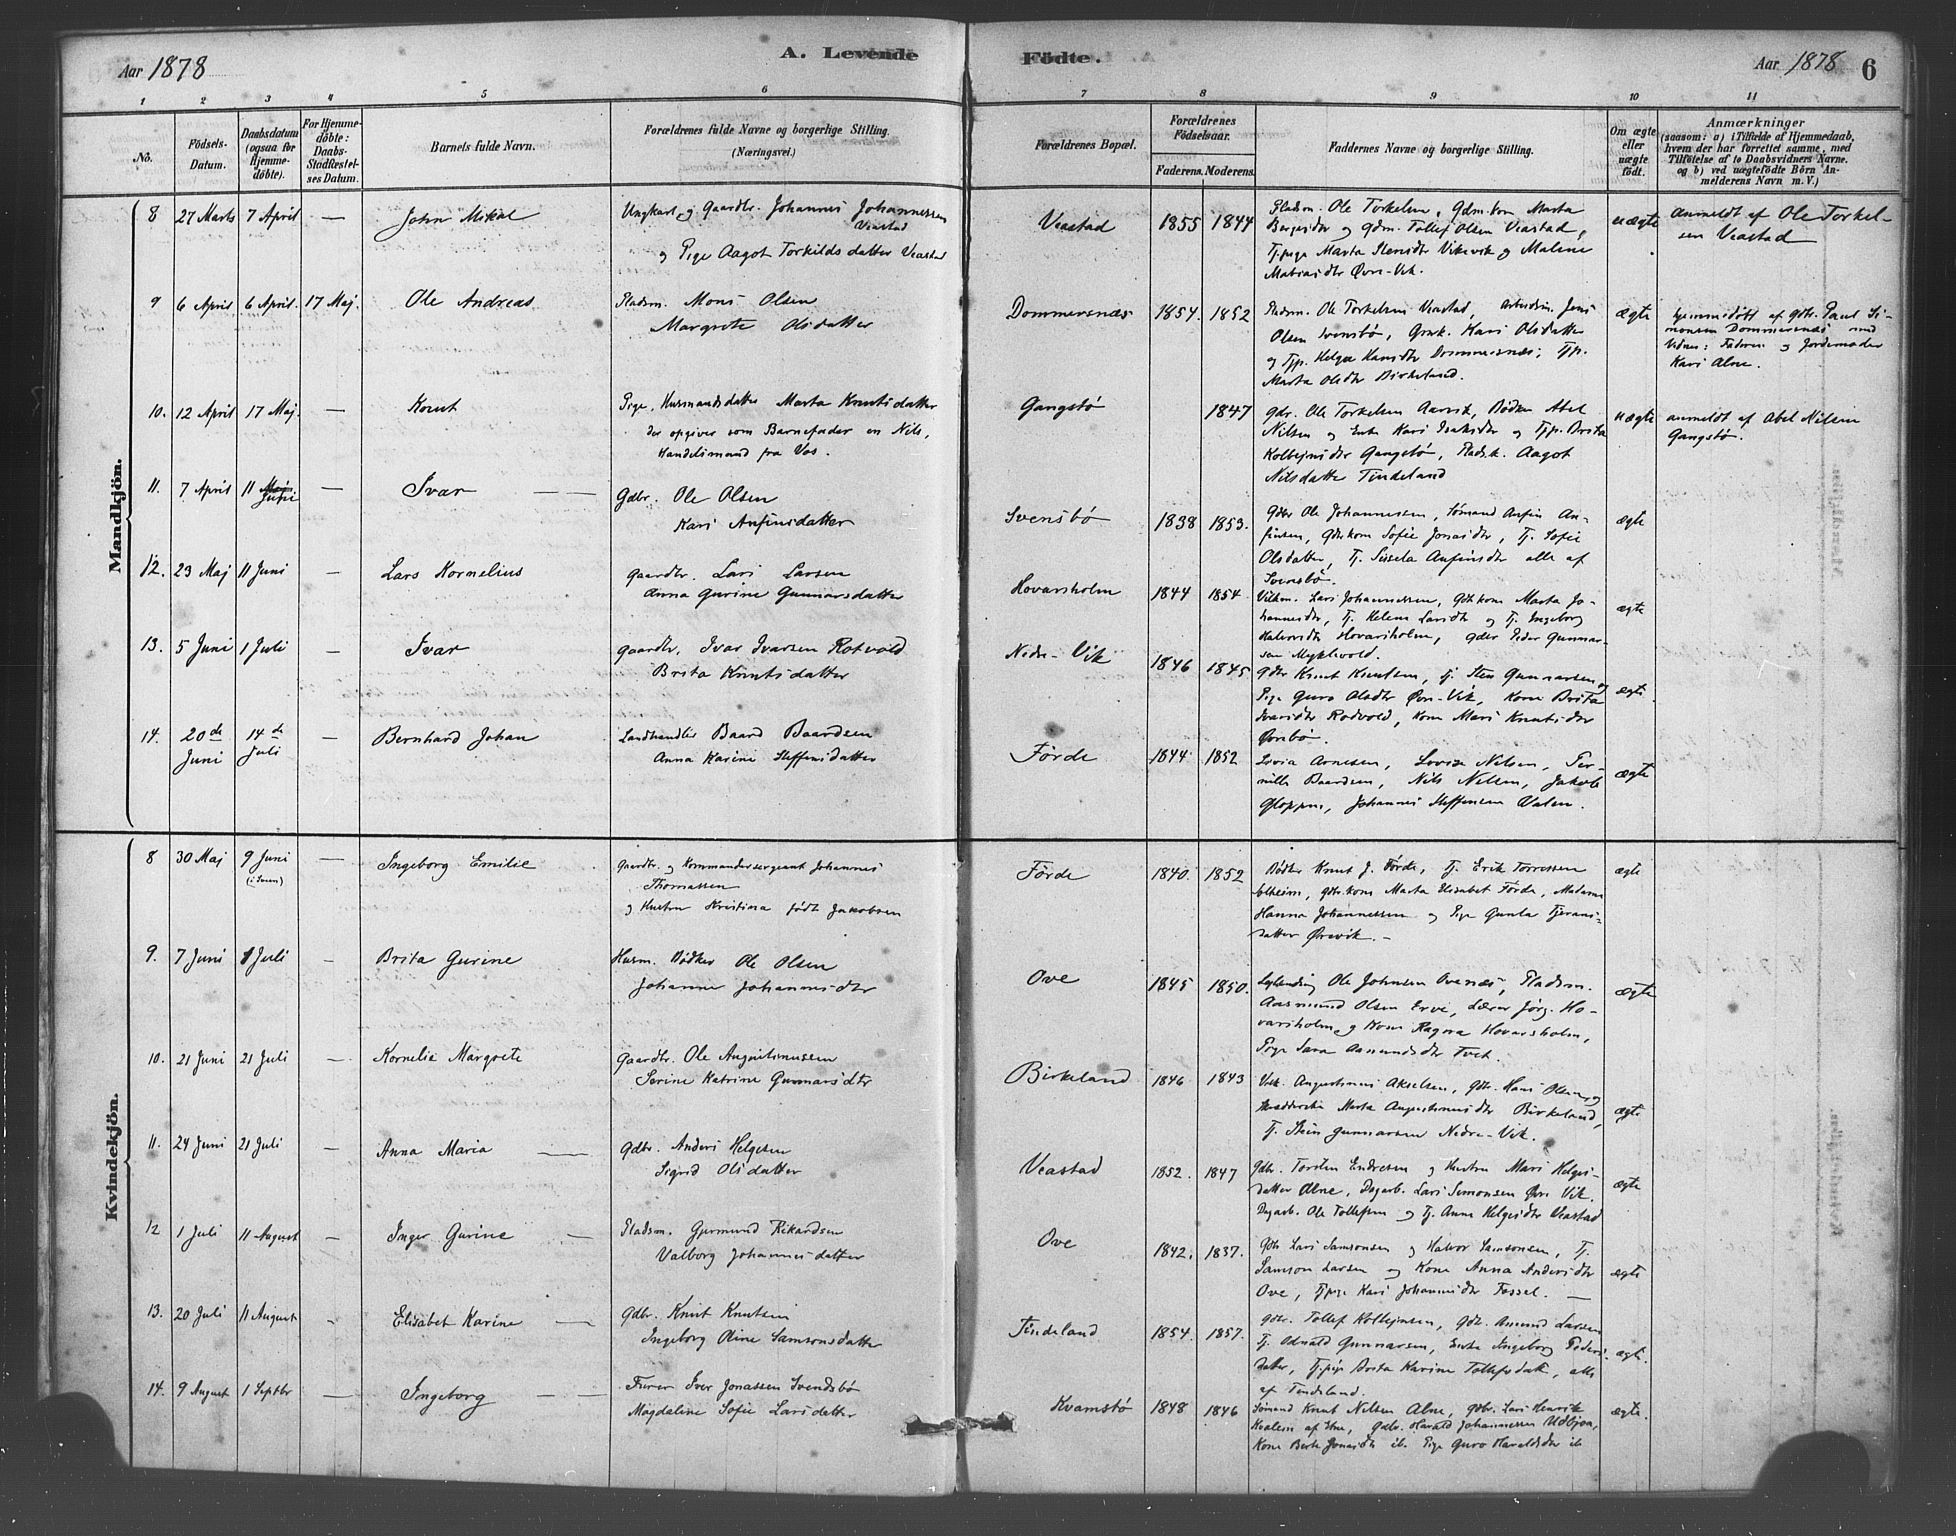 Aar 1878
A. Levende
Födte.
Aar 1878
6
1 2 3 4 5 6 7 8 9 10 11
No.
Födsels-Datum.
Daabsdatum (ogsaa for Hjemme-döbte).
For Hjemme-döbte: Daabs-Stadfæstel-ses Datum.
Barnets fulde Navn.
Forældrenes fulde Navne og borgerlige Stilling.
(Næringsvei.)
Forældrenes Bopæl.
Forældrenes Födselsaar.
Faderens. Moderens.
Faddernes Navne og borgerlige Stilling.
Om ægte eller uægte födt.
Anmærkninger
(saasom: a) i Tilfælde af Hjemmedaab,
hvem der har forrettet samme, med
Tilföielse af to Daabsvidners Navne.
og b) ved uægtefödte Börn An-
melderens Navn m. V.)
Mandkjön.
8 27 Marts 7 April — John Mikal
Ungkarl og Gaardbr. Johannes Johannessen
Veastad
og Pige Aagot Torkildsdatter Veastad
Veastad 1855 1844
Pladsm. Ole Torkelsen, Gdm.kon Marta
og Gdm. Tollef Olsen Veastad,
Tj.pige Marta Stensdtr Vikevik og Malene
Matiasdtr Øvre-Vik.
uægte
Anmeldt af Ole Torkel-
sen Veastad
9 6 April 6 April. 17 Maj. Ole Andreas
Pladsm. Mons Olsen
Margrete Olsdatter
Dommersnæs 1854. 1852
Pladsm. Ole Torkelsen Veastad, Arbeidsm. Jens
Olsen Svensbø, Gmk. Kari Olsdatter
og Tjp. Helga Hansdtr Dommersnæs, Tjp.
Marta Olsdtr Birkeland.
ægte
hjemmedøbt af gdbr. Paul Si-
monsen Dommersnæs med
Vidner: Faderen og Jordemoder
Kari Alne.
10. 12 April 17 Maj. — Knut
Pige, Husmandsdatter Marta Knutsdatter
der opgiver som Barnefader en Nils,
Handelsmand fra Vos.
Gangstø 1847
gdr. Ole Torkelsen Aarvik, Bødker Abel
Nilsen og Enke Kari Isaksdtr og Tjp. Brita
Kolbejnsdtr Gangstø, Pladsk. Aagot
Nilsdatter Tindeland
uægte
anmeldt af Abel Nilsen
Gangstø.
11. 7 April 11 Juni — Ivar
Gdbr. Ole Olsen
Kari Anfinsdatter
Svensbø 1838 1853.
Gdbr Ole Johannessen, Sømand Anfin An-
finsen, Gdbrkone Sofie Jonasdtr, Tj. Sofie
Olsdatter, Tj. Sissela Anfinsdtr alle af
Svensbø.
ægte
12. 23 Maj 11 Juni — Lars Kornelius
Gaardbr. Lars Larsen
Anna Gurine Gunnarsdatter
Hovarsholm 1844 1854.
Lars Johannessen, Gdbkone Marta Jo-
hannesdtr, Tj. Helene Larsdtr og Tj. Ingeborg
Halvorsdtr Hovarsholm, gdbr Peder Gunnar-
sen Myklevold.
ægte
13. 5 Juni 1 Juli — Ivar
Gaardbr. Ivar Ivarsen Rotvold
Brita Knutsdatter
Nedre-Vik 1846 1845
Gdbr Knut Knutsen, Tj. Sten Gunnarsen og
Pige Guro Olsdtr Øvre-Vik, Kone Brita
Ivarsdtr Rodvold, Kone Mari Knutsdtr
Ørebø.
ægte.
14. 20de Juni 14de Juli — Bernhard Johan
Landhandler Baard Baardsen
Anna Karine Steffensdatter
Førde 1844 1852
Lovia Arnesen, Lovise Nilsen, Per-
nille Baardsen, Nils Nilsen, Jakob
Gloppen, Johannes Steffensen Valen.
ægte
Kvindekjön.
8 30 Maj 9 Juni — Ingeborg Emilie
Gaardbr. og Kommandersergeant Johannes
Thomassen
og Hustru Kristina født Jakobsen
Førde 1840. 1852
Bødker Knut J. Førde, Tj. Erik Torressen
Solheim, gdbrkone Marta Elisabet Førde, Madame
Hanna Johannessen og Pige Gunla Tjerans-
datter Ørevik. –
ægte
9. 7 Juni 1 Juli – Brita Gurine
Husm. Bødker Ole Olsen
Johanne Johannesdtr
Ove 1845 1850.
Ole Johnsen Ovenæs, Pladsm.
Aasmund Olsen Erve, Lærer Jørg. Ho-
varsholm og Kone Ragna Hovarsholm,
Pige Sara Aamundsdtr Tvet.
ægte
10. 21 Juni 21 Juli — Kornelia Margrete
Gaardbr. Ole Augustinussen
Serine Katrine Gunnarsdtr
Birkeland 1846 1843
Augustinus Akselsen, Gdbr. Hans Olsen, og
Marta Augustinusdtr Birkeland,
Tj. Stein Gunnarsen Nedre-Vik.
ægte
11. 24 Juni 21 Juli — Anna Maria
Gdbr. Anders Helgesen
Sigrid Olsdatter
Veastad 1852. 1847
Gdbr. Torsten Endresen og Hustru Mari Helges-
datter Alne, Dagarb. Lars Simonsen Øvre Vik.
Dagarb. Ole Tollefsen og Tj. Anna Helgesdtr Veastad
ægte
12 1 Juli 11 August – Inger Gurine
Pladsm. Gjermund Rikardsen
Valborg Johannesdatter
Ove 1842. 1837.
Gdb Lars Samsonsen og Halvor Samsonsen, Tj.
Samson Larsen og Kone Anna Andersdtr
Ove, Tjpige Kari Johannesdtr Tossel. —
ægte
13. 20 Juli 11 August – Elisabet Karine
Gdbr. Knut Knutsen
Ingeborg Oline Samsonsdatter
Tindeland 1854. 1857.
gdbr. Tollef Kolbejnsen, Gdb. Amund Larsen
Tj. Odvald Gunnarsen, Enke Ingeborg Peders-
datter, Tj.pige Brita Karine Tollefsdatt, alle
af Tindeland.
ægte.
14. 9 August 1 Septbr — Ingeborg
Furer Iver Jonassen Svendsbø
Magdaline Sofie Larsdatter
Kvamstø 1848 1846
Sømand Knut Nilsen Alne, gdbr. Lars Henrik
Kvalem af Etne, Gdbr. Harald Johannessen Udbjoa,
Kone Berte Jonasdtr ib. Pige Guro Haraldsdtr ib
ægte.